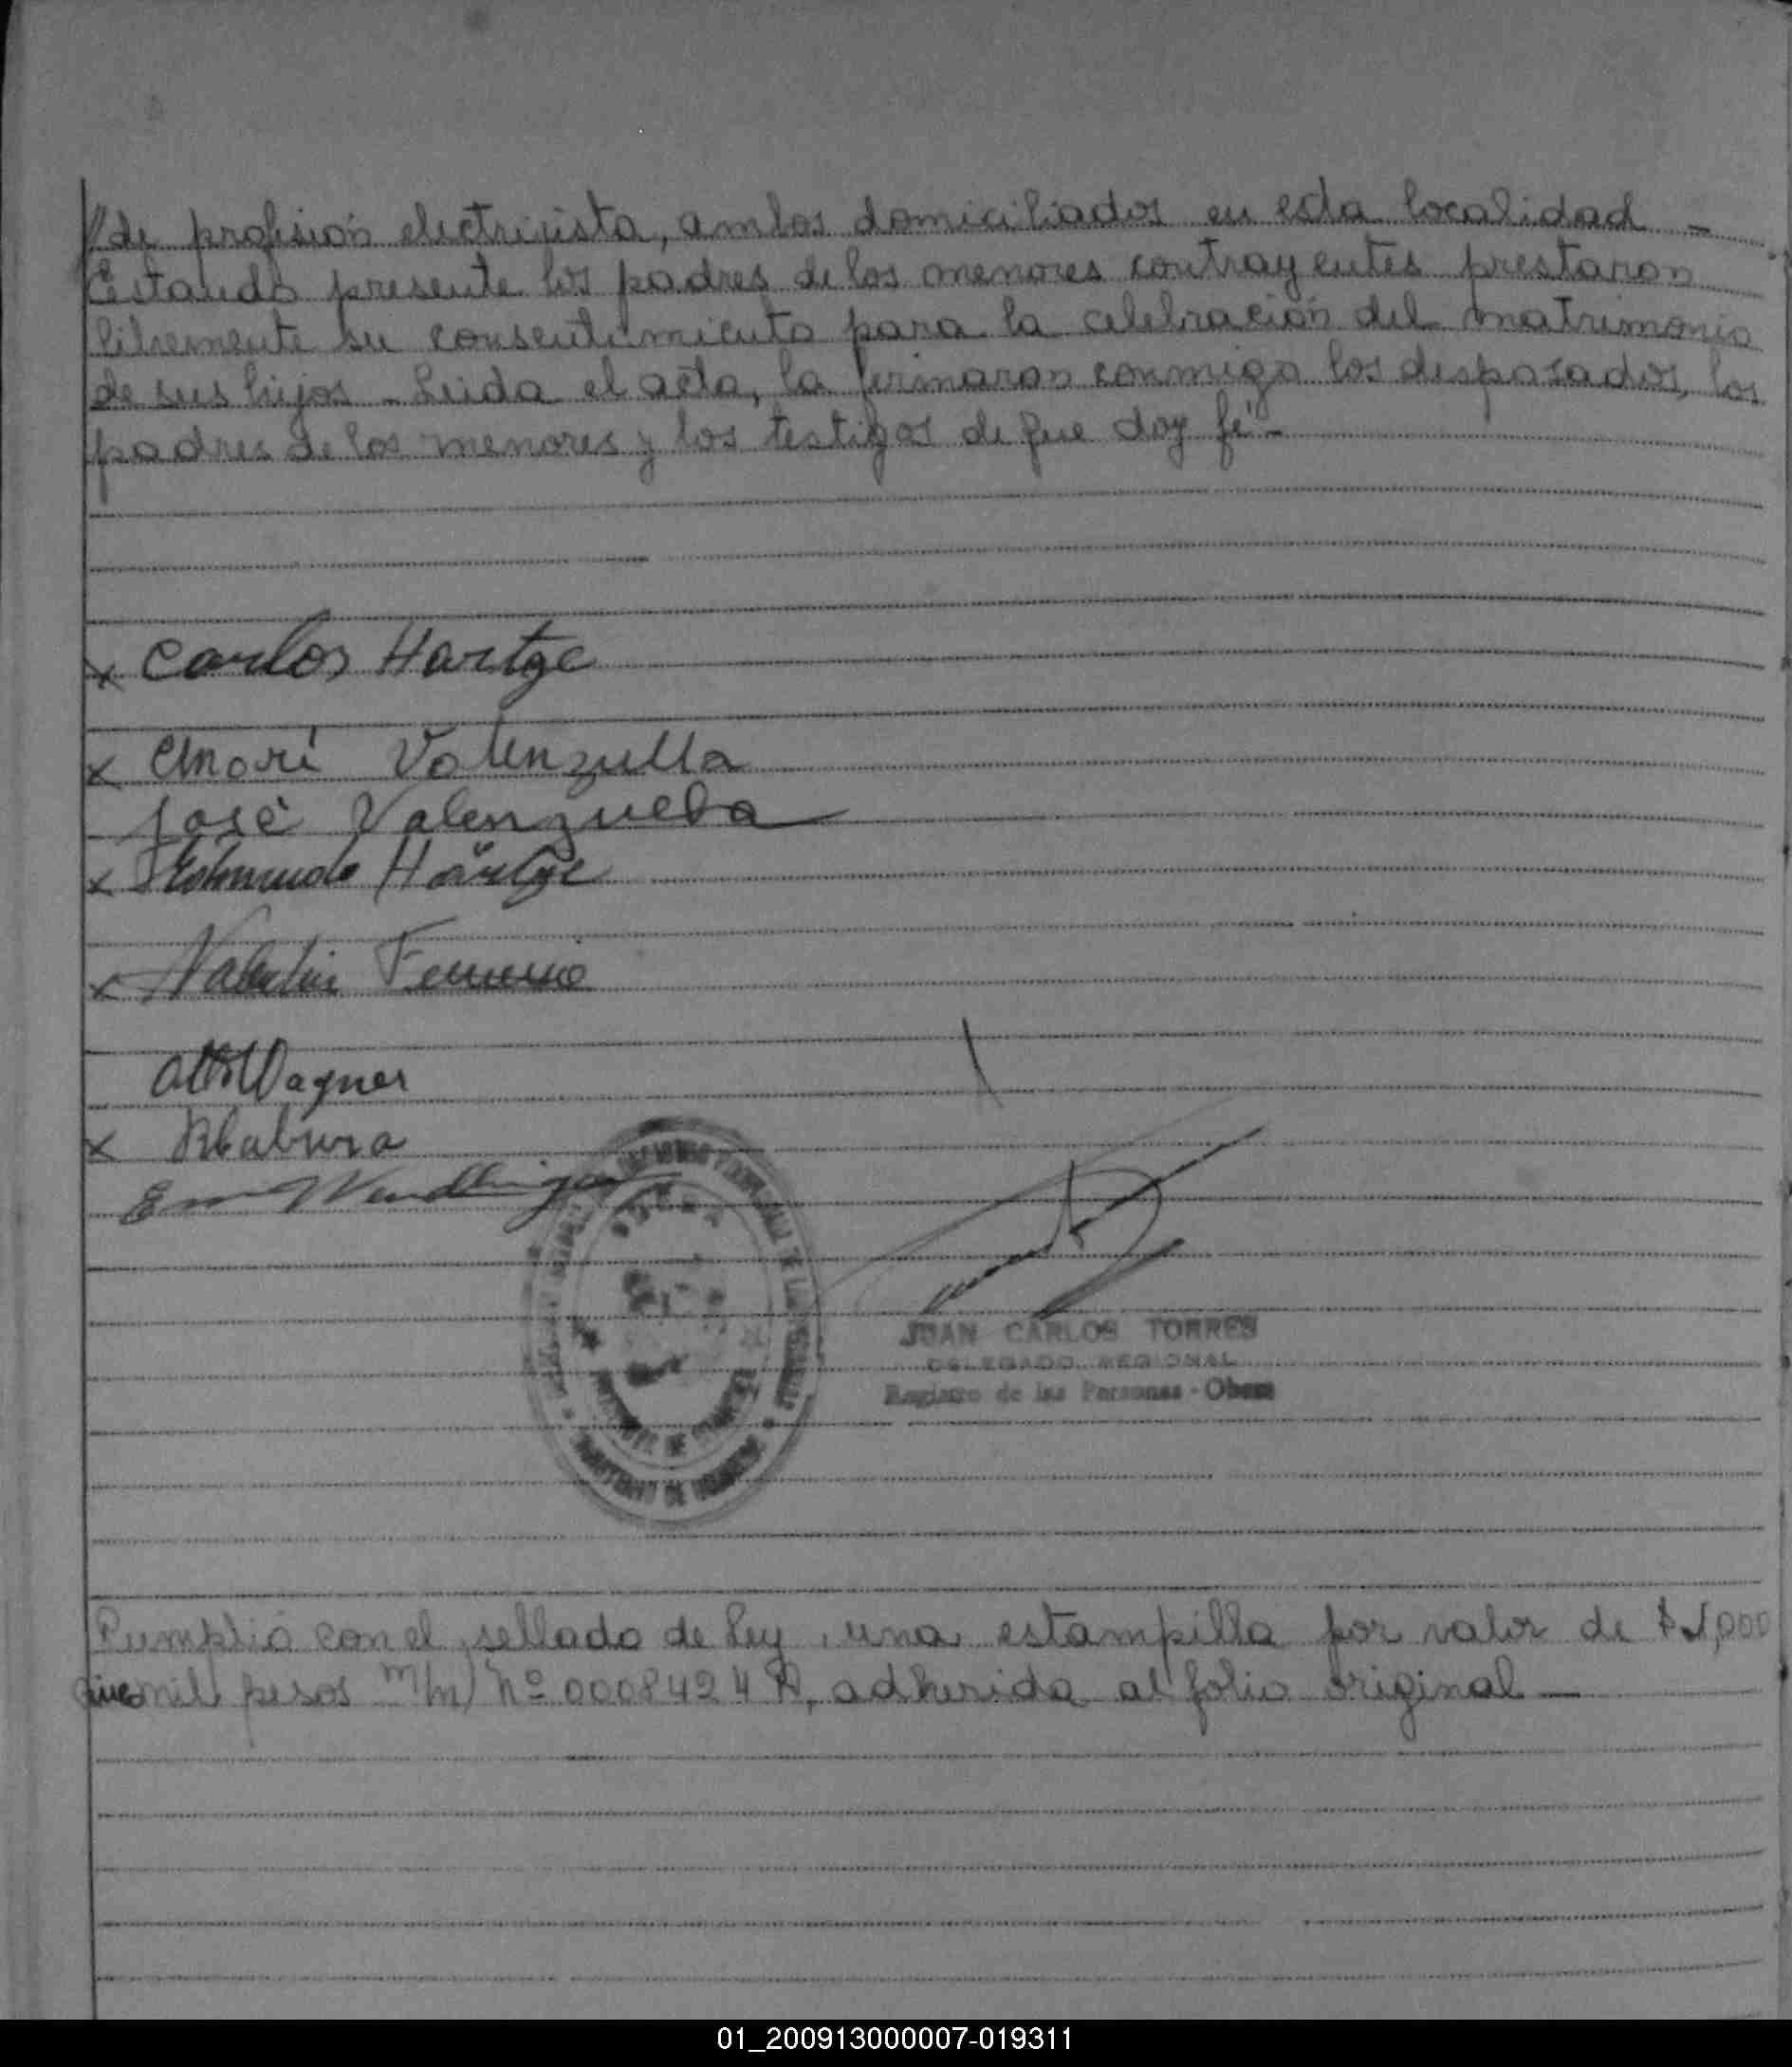 // de profisión electricista, ambos domiciliados en esta localidad -
Estando presente los padres de los menores contrayentes prestaron
libremente su consentimiento para la celebración del matrimonio
de sus hijos - Leida el acta, la firmaron conmigo los desposados, los
padres de los menores y los testigos de que doy fé -
x Carlos Hartge
x Valenzuella
José Valenzuela
x Edmundo Hartge
x Valentin
Otto Wagner
x
JUAN CARLOS TORRES
DELEGADO REGIONAL
Registro de las Personas - Obera
Cumplió con el sellado de Ley, una estampilla por valor de $ 1,000
mil pesos m/n) Nº 0008424 A, adherida al folio original —
01_200913000007-019311